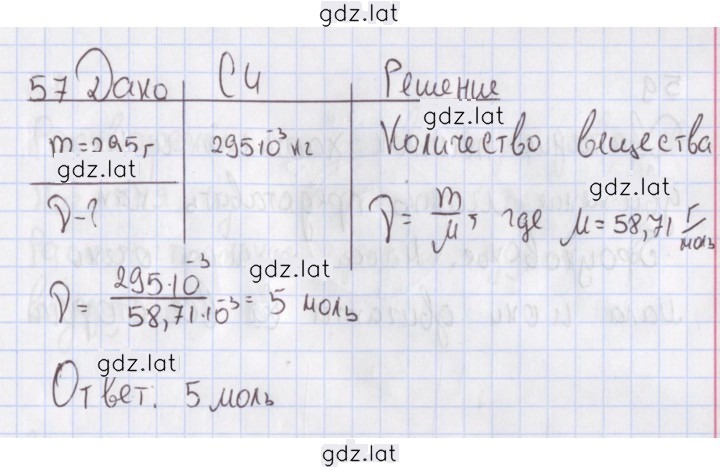 gdz.lat
57 Дано СИ Решение
gdz.lat
m = 295 г 295·10⁻³ кг Количество вещества
gdz.lat
gdz.lat
ν - ? ν = m/μ, где μ = 58,71 г/моль
gdz.lat
ν = 295·10⁻³/58,71·10⁻³ = 5 моль
gdz.lat
Ответ: 5 моль
gdz.lat